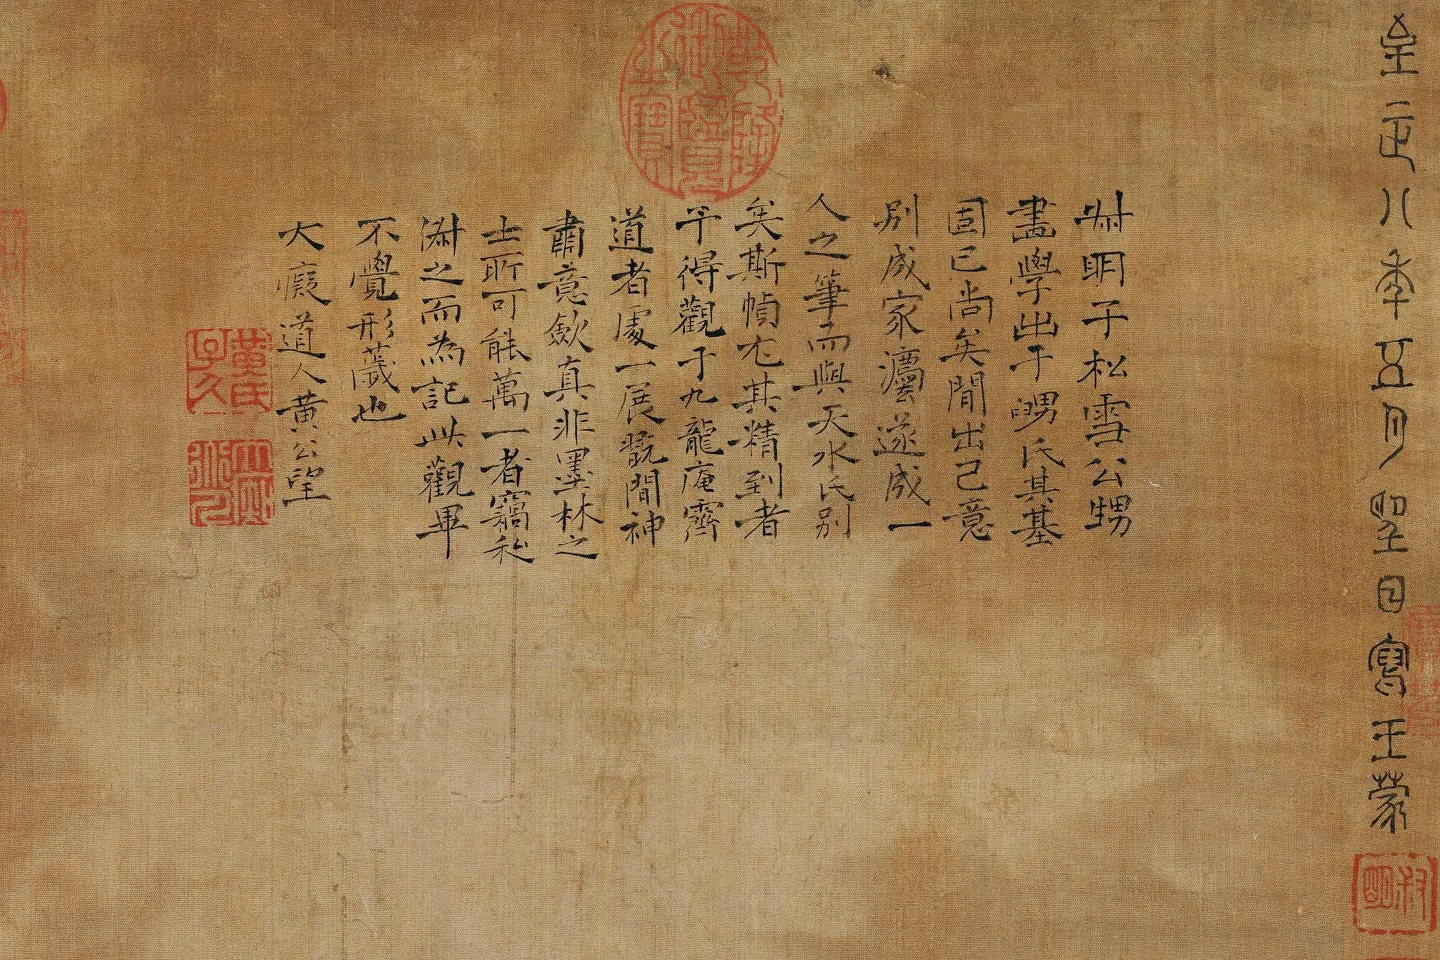 至正八年五月望日寫王蒙
叔明
叔明子松雪公甥
畫學出于甥氏其基
固已尚矣間出己意
別成家灋遂成一
人之筆而與天水氏別
矣斯幀尤其精到者
予得觀于九龍庵霽
道者處一展翫間神
肅意歛真非墨林之
士所可能萬一者竊私
淑之而為記此觀畢
不覺形蕆也
大癡道人黃公望
乾隆御覽之寶
黃氏子久